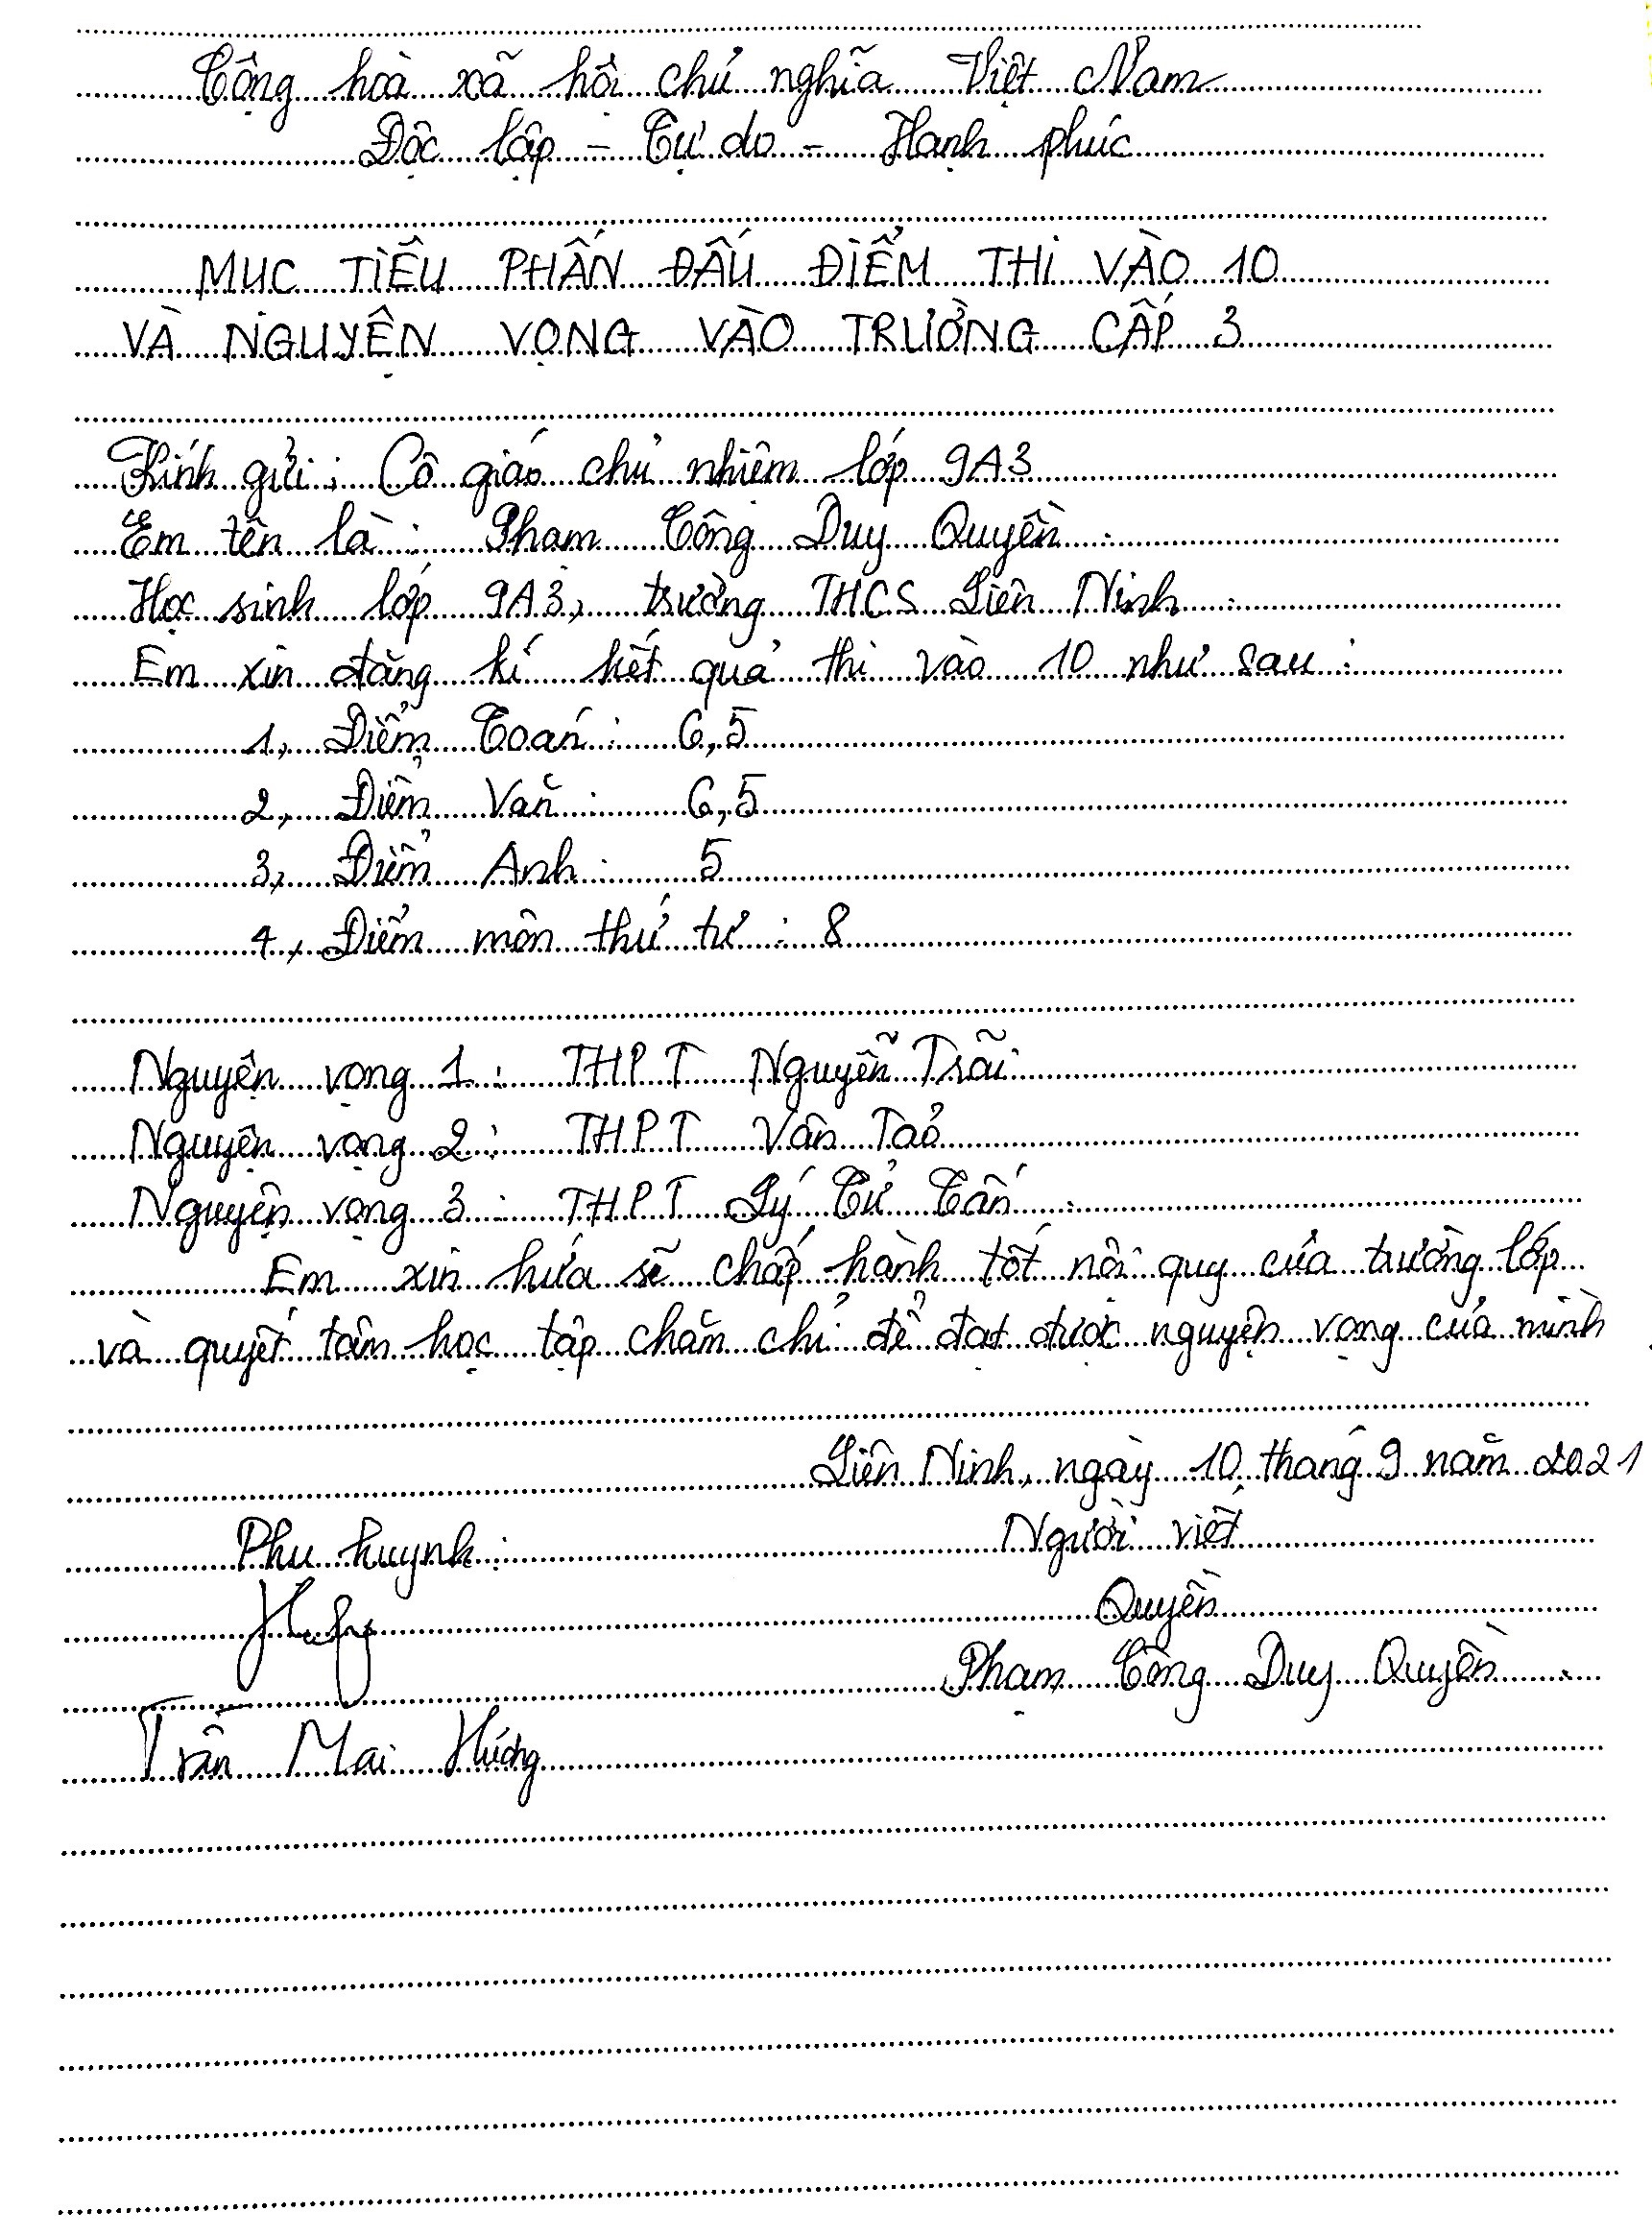 Cộng hoà xã hội chủ nghĩa Việt Nam
Độc lập - Tự do - Hạnh phúc
MỤC TIÊU PHẤN ĐẤU ĐIỂM THI VÀO 10
VÀ NGUYỆN VỌNG VÀO TRƯỜNG CẤP 3
Kính gửi : Cô giáo chủ nhiệm lớp 9A3
Em tên là : Phạm Công Duy Quyền .
Học sinh lớp 9A3, trường THCS Liên Ninh .
Em xin đăng kí kết quả thi vào 10 như sau :
1, Điểm Toán : 6,5
2, Điểm Văn : 6,5
3, Điểm Anh : 5
4, Điểm môn thứ tư : 8
Nguyện vọng 1 : THPT Nguyễn Trãi
Nguyện vọng 2 : THPT Vân Tảo
Nguyện vọng 3 : THPT Lý Tử Tấn .
Em xin hứa sẽ chấp hành tốt nội quy của trường lớp
và quyết tâm học tập chăm chỉ để đạt được nguyện vọng của mình
Liên Ninh, ngày 10 tháng 9 năm 2021
Phụ huynh : Người viết
Quyền
Phạm Công Duy Quyền .
Trần Mai Hương